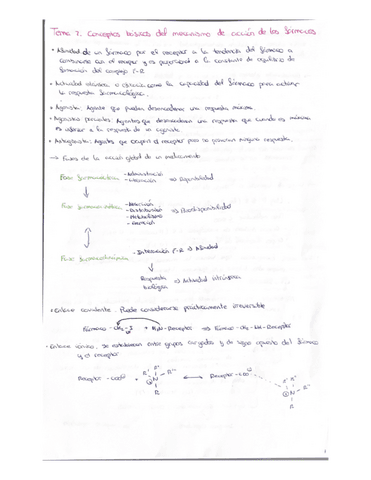 Tema 7. Conceptos básicos del mecanismo de acción de los fármacos
• Afinidad de un fármaco por el receptor a la tendencia del fármaco a
combinarse con el receptor y es proporcional a la constante de equilibrio de
formación del complejo F-R
• Actividad intrínseca o eficacia como la capacidad del fármaco para activar
la respuesta farmacológica.
• Agonista: Agente que puede desencadenar una respuesta máxima.
• Agonistas parciales: Agentes que desencadenan una respuesta que cuando es máxima
es inferior a la respuesta de un agonista
• Antagonista: Agentes que ocupan el receptor pero no generan ninguna respuesta.
→ Fases de la acción global de un medicamento
Fase farmacéutica - Administración
- Liberación ⇒ Disponibilidad
Fase farmacocinética - Absorción
- Distribución ⇒ Biodisponibilidad
- Metabolismo
- Excreción
Fase farmacodinámica - Interacción F-R ⇒ Afinidad
Respuesta biológica ⇒ Actividad intrínseca
• Enlace covalente. Puede considerarse prácticamente irreversible
Fármaco - CH₂ - + H₂N-Receptor ⇒ Fármaco - CH₂ - NH - Receptor
• Enlace iónico. Se establecen entre grupos cargados y de signo opuesto del fármaco
y el receptor
Receptor - COO⁻ R' R'' N R''' R ⟷ Receptor - COO⁻ R' R'' N R''' R
1